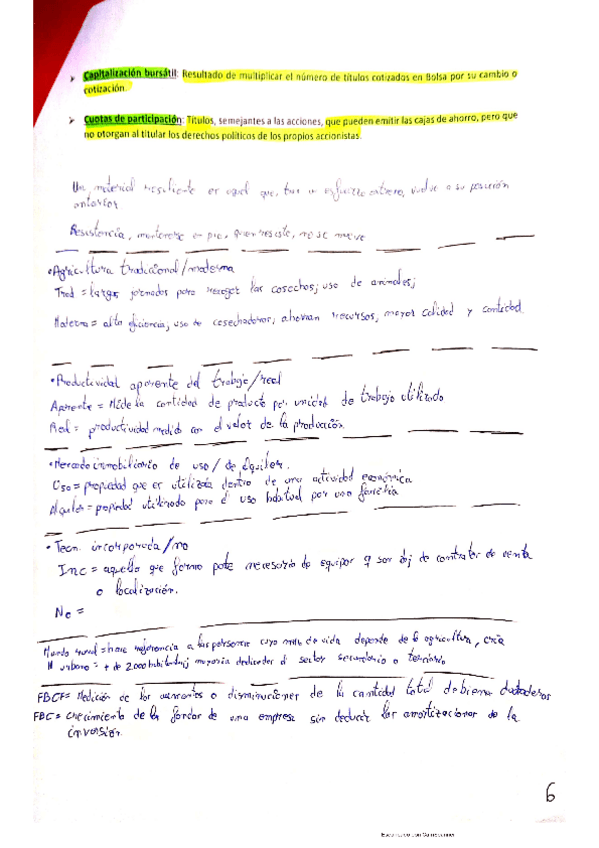 ➢ Capitalización bursátil: Resultado de multiplicar el número de títulos cotizados en Bolsa por su cambio o
cotización.
➢ Cuotas de participación: Títulos, semejantes a las acciones, que pueden emitir las cajas de ahorro, pero que
no otorgan al titular los derechos políticos de los propios accionistas.
Un material resiliente es aquel que, tras un esfuerzo extremo, vuelve a su posición
anterior
Resistencia, mantenerse en pie, quien resiste, no se mueve
•Agricultura tradicional/moderna
Trad = largas jornadas para recoger las cosechas; uso de animales;
Moderna = alta eficiencia, uso de cosechadoras, ahorran recursos, mayor calidad y cantidad
•Productividad aparente del trabajo/real
Aparente = Mide la cantidad de producto por unidad de trabajo utilizado
Real = productividad medida con el valor de la producción.
•Mercado inmobiliario de uso/de alquiler.
Uso = propiedad que es utilizada dentro de una actividad económica
Alquiler = propiedad utilizada para el uso habitual por una familia
• Tecn. incorporada/no
Inc = aquello que forma parte necesaria de equipos q son obj de contrato de venta
o localización.
No =
Mundo rural = hace referencia a las personas cuyo modo de vida depende de la agricultura, cría
M urbano = + de 2.000 habitantes; mayoría dedicados al sector secundario o terciario
FBCF = Medición de los aumentos o disminuciones de la cantidad total de bienes duraderos
FBC = crecimiento de los fondos de una empresa sin deducir las amortizaciones de la
inversión.
6
Escaneado con CamScanner